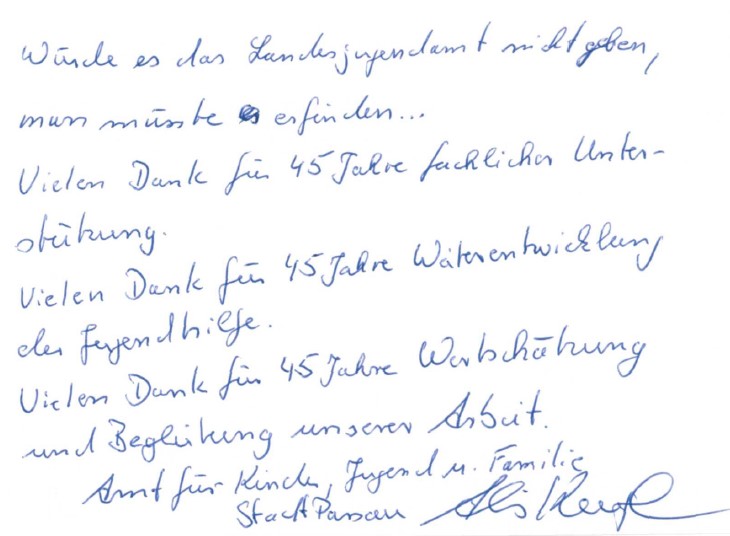 Würde es das Landesjugendamt nicht geben,
man müsste es erfinden...
Vielen Dank für 45 Jahre fachlicher Unter-
stützung.
Vielen Dank für 45 Jahre Weiterentwicklung
der Jugendhilfe.
Vielen Dank für 45 Jahre Wertschätzung
und Begleitung unserer Arbeit.
Amt für Kinder, Jugend u. Familie
Stadt Passau